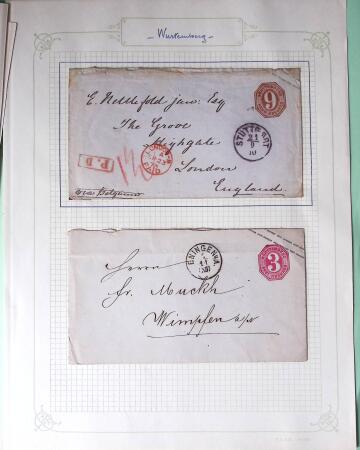 Wurtemberg
9
E. Nettlefold jun. Esq
The Grove
Highgate
London
England
via Belgium
P.D.
STUTTGART
21
9
LONDON
PAID
3
ENINGEN
Herrn
Fr. Muckh
Wimpfen a/n